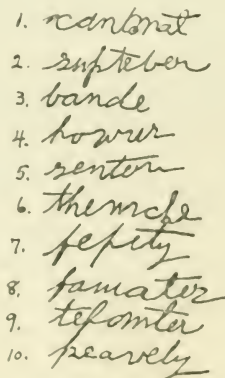 1. cantmat
2. supteber
3. bande
4. howur
5. senton
6. themche
7. fepety
8. famater
9. tefomter
10. peavely